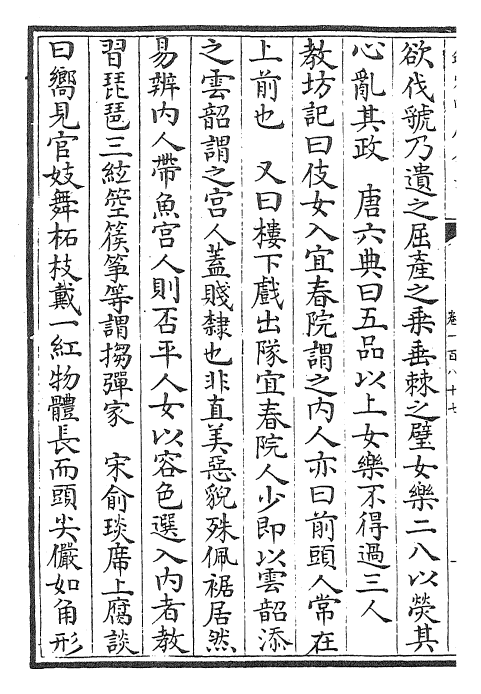 欲伐虢乃遺之屈產之乗垂棘之璧女樂二八以熒其
心亂其政　唐六典曰五品以上女樂不得過三人
教坊記曰伎女入宜春院謂之内人亦曰前頭人常在
上前也　又曰樓下戲出隊宜春院人少即以雲韶添
之雲韶謂之宫人蓋賤隸也非直美惡貌殊佩裾居然
易辨内人帶魚宫人則否平人女以容色選入内者教
習琵琶三絃箜篌筝等謂搊彈家　宋俞琰席上腐談
曰嚮見官妓舞柘枝戴一紅物體長而頭尖儼如角形
卷一百八十七